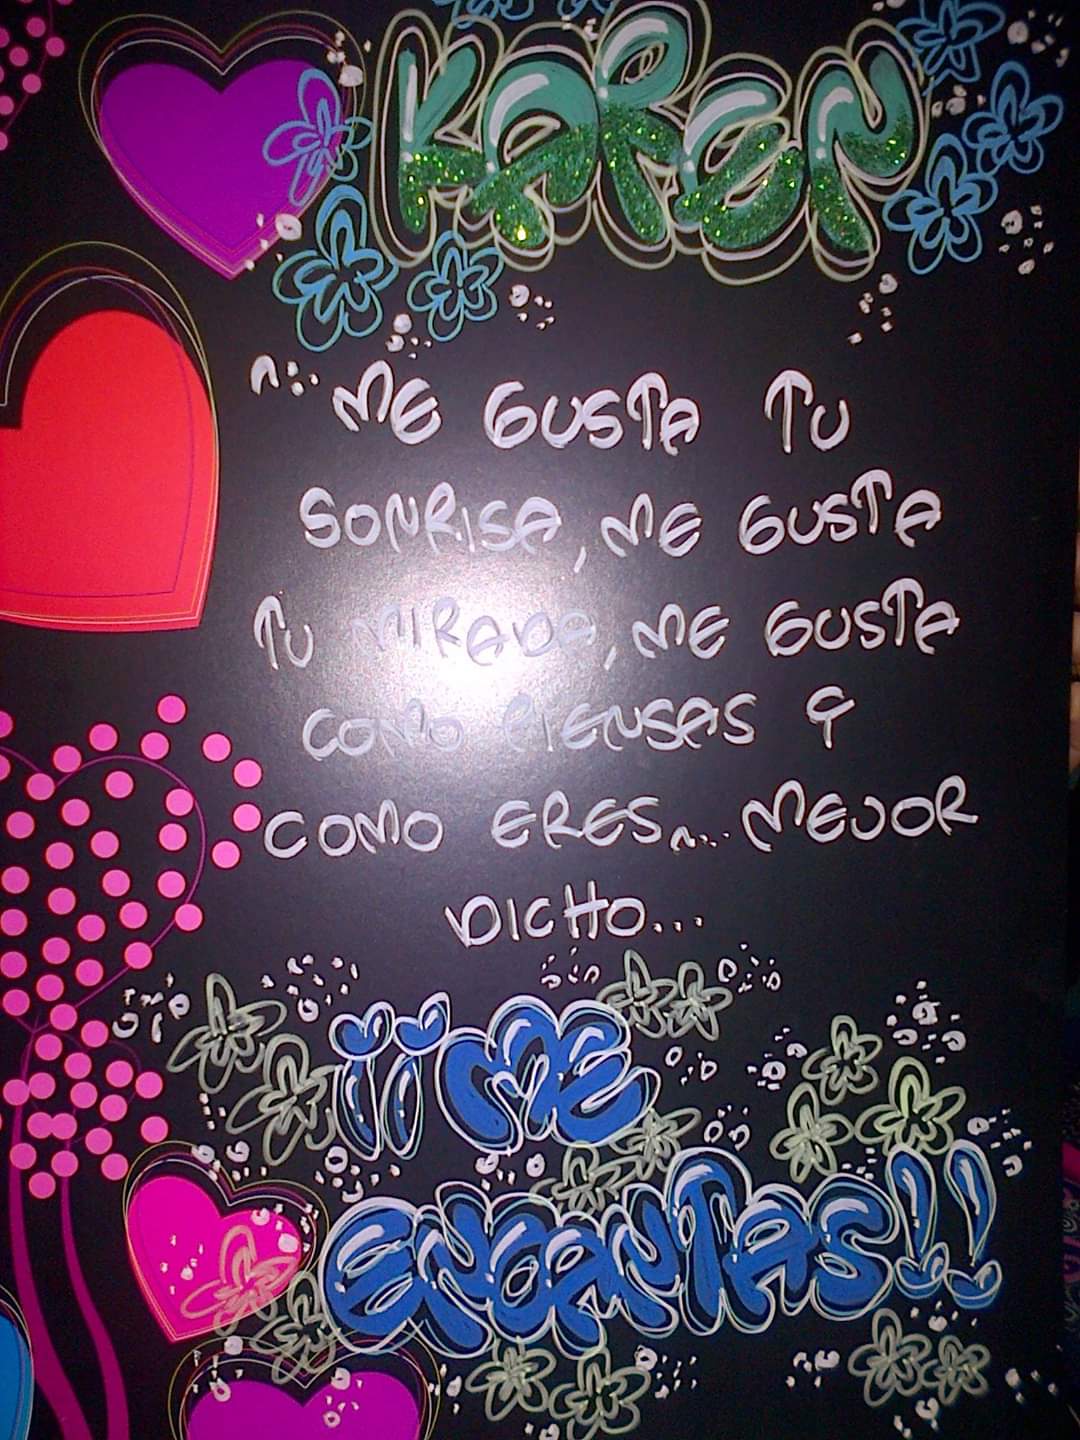 KAREN
ME GUSTA TU
SONRISA, ME GUSTA
TU MIRADA, ME GUSTA
COMO PIENSAS Y
COMO ERES... MEJOR
DICHO...
¡¡ME
ENCANTAS!!